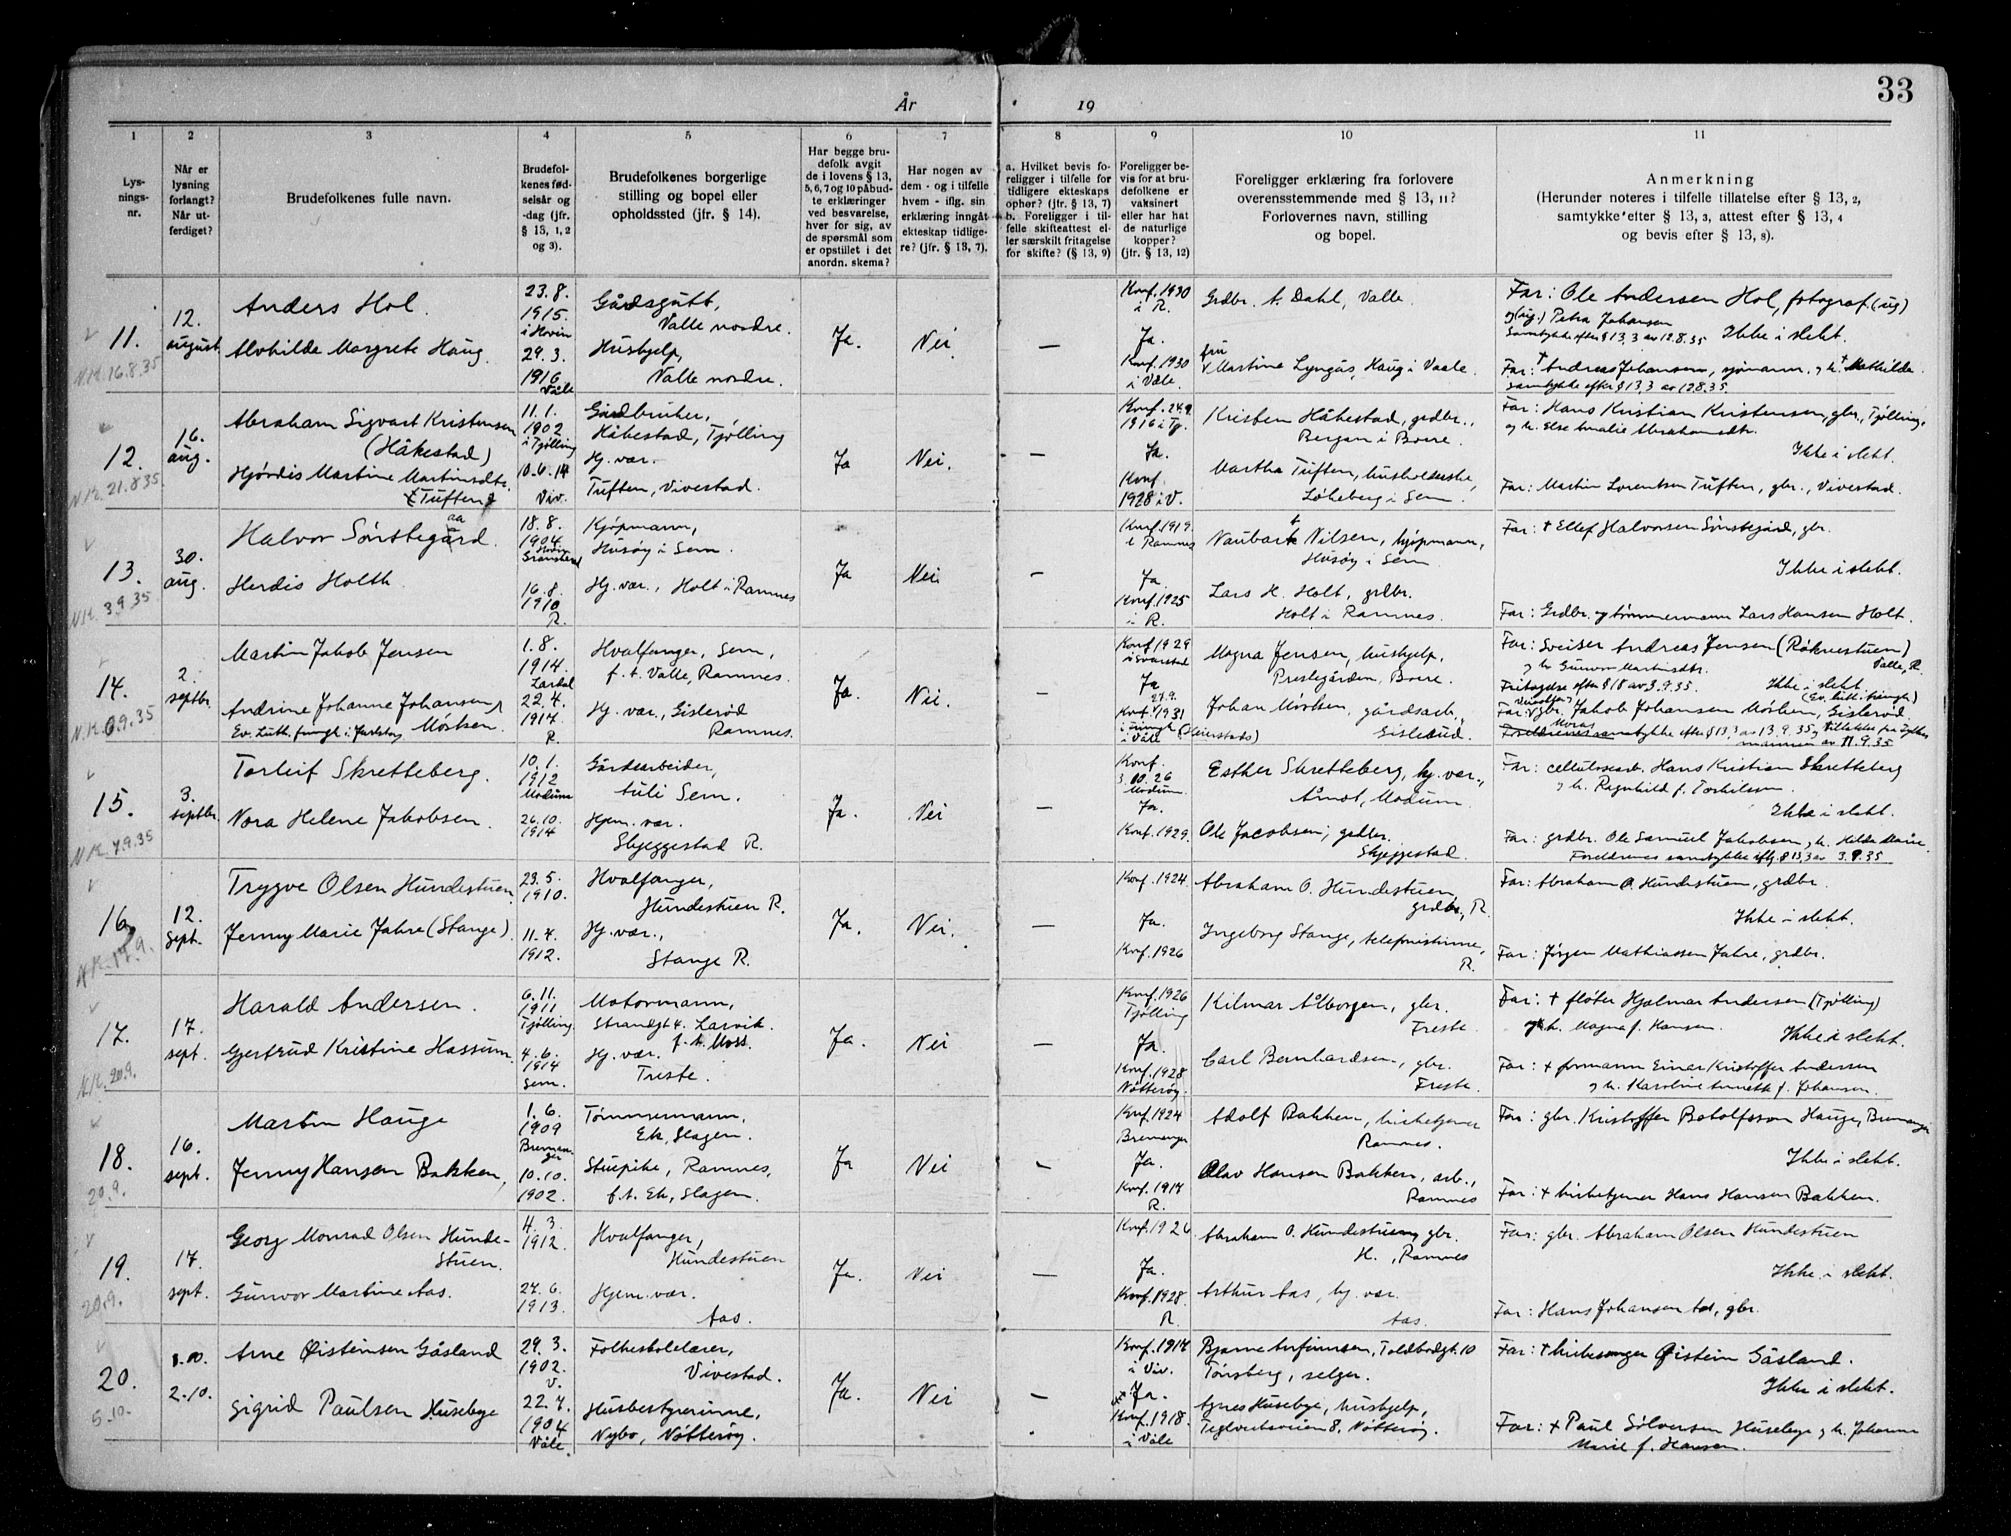 33
År
19
1
2
3
4
5
6
7
8
9
10
11
Lys-
nings-
nr.
Når er
lysning
forlangt?
Når ut-
ferdiget?
Brudefolkenes fulle navn.
Brudefol-
kenes fød-
selsår og
-dag (jfr.
§ 13, 1, 2
og 3).
Brudefolkenes borgerlige
stilling og bopel eller
opholdssted (jfr. § 14).
Har begge bru-
defolk avgit
de i lovens § 13,
5, 6, 7 og 10 påbud-
te erklæringer
ved besvarelse,
hver for sig, av
de spørsmål som
er opstillet i det
anordn. skema?
Har nogen av
dem - og i tilfelle
hvem - iflg. sin
erklæring inngåt
ekteskap tidlige-
re? (jfr. § 13, 7).
a. Hvilket bevis fo-
religger i tilfelle for
tidligere ekteskaps
ophør? (jfr. § 13, 7)
b. Foreligger i til-
felle skifteattest el-
ler særskilt fritagelse
for skifte? (§ 13, 9)
Foreligger be-
vis for at bru-
defolkene er
vaksinert
eller har hat
de naturlige
kopper?
(jfr. § 13, 12)
Foreligger erklæring fra forlovere
overensstemmende med § 13, 11?
Forlovernes navn, stilling
og bopel.
Anmerkning
(Herunder noteres i tilfelle tillatelse efter § 13, 2,
samtykke efter § 13, 3, attest efter § 13, 4
og bevis efter § 13, 8).
11.
N.K. 16.8.35
12.
august
Anders Hol.
Alvhilde Margrete Haug.
23.8.
1915.
i Hovin
29.3.
1916
Våle
Gårdsgutt,
Valle nordre.
Hushjelp,
Valle nordre.
Ja.
Nei
—
Konf. 1930
i R.
Ja.
Konf. 1930
i Våle.
Grdbr. A. Dahl, Valle.
fru
Martine Lyngås, Haug i Vaale.
Far: Ole Andersen Hol, fotograf. (ug)
og (ug.) Petra Johansen
Samtykke efter § 13,3 av 12.8.35 Ikke i slekt.
Far: † Andreas Johansen, sjømann, og h. † Mathilde
samtykke efter § 13,3 av 12.8.35
12.
N.K. 21.8.35
16.
aug.
Abraham Sigvart Kristensen
(Håkestad)
Hjørdis Martine Martinsdtr.
(Tuften)
11.1.
1902
i Tjølling
10.6.14
Viv.
Gårdbruker,
Håkestad, Tjølling
Hj. vær.
Tuften, Vivestad.
Ja
Nei.
—
Konf. 24.9.
1916 i Tj.
Ja.
Konf.
1928 i V.
Kristen Håkestad, grdbr.,
Bergan i Borre.
Martha Tuften, husholderske,
Løkeberg i Sem.
Far: Hans Kristian Kristensen, gbr., Tjølling,
og h. Else Amalie Abrahamsdtr.
Ikke i slekt.
Far: Martin Lorentsen Tuften, gbr., Vivestad.
13.
N.K. 3.9.35
30.
aug.
Halvor Sønstegård.
aa
Herdis Holth
18.8.
1904
Hovin
Gransherad
16.8.
1910
R.
Kjøpmann,
Husøy i Sem.
Hj. vær., Holt i Ramnes
Ja
Nei.
—
Konf. 1919.
i Ramnes
Ja
Konf. 1925
i R.
Nilsen, kjøpmann,
Husøy i Sem
Lars H. Holt, grdbr.
Holt i Ramnes.
Far: † Ellef Halvorsen Sønstegård, gbr.
Ikke i slekt.
Far: Grdbr. og tømmermann Lars Hansen Holt.
14.
N.K. 6.9.35
2.
septbr.
Martin Jakob Jensen
Andrine Johanne Johansen
Ev. Luth. frimgh. i Jarlsberg Mørken.
1.8.
1914.
Lardal
22.4.
1917.
R.
Hvalfanger, Sem,
f. t. Valle, Ramnes.
Hj. vær., Gislerød
Ramnes.
Ja.
Nei.
—
Konf. 1929
i Svarstad
Ja
27.9.
Konf. 1931
i Våle
Magna Jensen, hushjelp,
Prestegården, Borre.
Johan Mørken, gårdsarb.,
Gislerud.
Far: Sveiser Andreas Jensen (Røknestuen)
og h. Gunvor Martinsdtr. Valle, R.
Fritagelse efter § 18 av 3.9.35. Ikke i slekt.
Far: gbr. Jakob Johansen Mørken, Gislerød
Foreldrenes samtykke efter § 13,3 av 13.9.35
av 11.9.35
15.
N.K. 7.9.35
3.
septbr.
Torleif Skretteberg.
Nora Helene Jakobsen.
10.1.
1912
Modum
26.10.
1914
Gårdsarbeider,
Auli Sem.
Hjem. vær.
Skjeggestad R.
Ja.
Nei
—
Konf.
3.10.26
Modum
Ja.
Konf. 1929.
Esther Skretteberg, hj. vær.,
Åmot, Modum.
Ole Jacobsen, grdbr.
Skjeggestad.
Far: cellulosearb. Hans Kristian Skretteberg
og h. Ragnhild f. Torkilsen.
Ikke i slekt.
Far: grdbr. Ole Samuel Jakobsen og h. Hilda Marie.
Foreldrenes samtykke iflg. § 13,3 av 3.9.35
16.
N.K. 17.9.
12.
sept.
Trygve Olsen Hundestuen.
Jenny Marie Jahre (Stange).
23.5.
1910.
11.4.
1912.
Hvalfanger,
Hundestuen R.
Hj. vær.,
Stange R.
Ja.
Nei.
—
Konf. 1924.
Ja.
Konf. 1926
Abraham O. Hundestuen,
grdbr., R.
Ingeborg Stange, telefonistinne,
R.
Far: Abraham O. Hundestuen, grdbr.
Ikke i slekt.
Far: Jørgen Mathiassen Jahre, grdbr.
17.
N.K. 20.9.
17.
sept.
Harald Andersen.
Gjertrud Kristine Hassum.
6.11.
1911
Tjølling.
4.6.
1914
Sem.
Motormann,
Strandgt 4. Larvik.
f. t. Moss.
Hj. vær.
Freste.
Ja.
Nei
—
Konf. 1926
Tjølling
Ja.
Konf. 1928
Nøtterøy.
Hilmar Ålborgen, gbr.
Freste.
Carl Bernhardsen, gbr.
Freste.
Far: † fløter Hjalmar Andersen (Tjølling)
og h. Magna f. Hansen. Ikke i slekt.
Far: † formann Einar Kristoffer Andersen
og h. Karoline Annette f. Johansen.
18.
20.9.
16.
sept.
Martin Hauge
Jenny Hansen Bakken,
1.6.
1909
Breman-
ger
10.10.
1902.
Tømmermann,
Ek, Slagen.
Stuepike, Ramnes,
f. t. Ek, Slagen.
Ja
Nei
—
Konf. 1924
Bremanger
Ja.
Konf. 1917
R.
Adolf Bakken, kirketjener
Ramnes.
Olav Hansen Bakken, arb.,
Ramnes
Far: gbr. Kristoffer Botolfsson Hauge, Bremanger
Ikke i slekt.
Far: † kirketjener Hans Hansen Bakken.
19.
20.9.
17.
sept.
Georg Monrad Olsen Hunde-
stuen.
Gunvor Martine Aas.
4.3.
1912.
27.6.
1913.
Hvalfanger,
Hundestuen
Hjem. vær.
Aas.
Ja.
Nei
—
Konf. 1926
Ja.
Konf. 1928.
R.
Abraham O. Hundestuen, gbr.
H., Ramnes
Arthur Aas, hj. vær.
Aas.
Far: gbr. Abraham Olsen Hundestuen
Ikke i slekt.
Far: Hans Johansen Aas, gbr.
20.
5.10.
1.10.
2.10.
Arne Øisteinsen Gåsland
Sigrid Paulsen Huseby
29.3.
1902.
V.
22.7.
1904
Våle.
Folkeskolelærer,
Vivestad.
Husbestyrerinne,
Nybo, Nøtterøy.
Ja.
Nei
—
Konf. 1917
i Viv.
Ja.
Konf. 1918.
i Våle
Bjarne Anfinnsen, Toldbodgt. 10
Tønsberg, selger.
Agnes Huseby, hushjelp,
Teglverksveien 8, Nøtterøy.
Far: † kirkesanger Øistein Gåsland.
Ikke i slekt.
Far: † Paul Sølversen Huseby og h. Johanne
Marie f. Hansen.